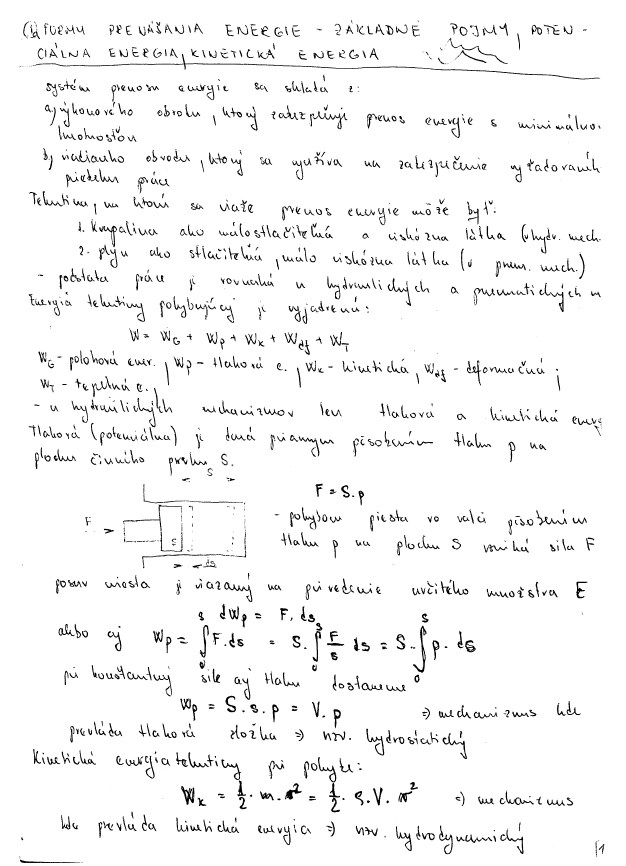 FORMY PRENÁŠANIA ENERGIE - ZÁKLADNÉ POJMY, POTEN-
CIÁLNA ENERGIA, KINETICKÁ ENERGIA
systém prenosu energie sa skladá z:
a) výkonového obvodu, ktorý zabezpečuje prenos energie s minimálnou
hmotnosťou
b) riadiaceho obvodu, ktorý sa využíva na zabezpečenie vyžadovaných
priebehu práce
Tekutina, na ktorú sa viaže prenos energie môže byť:
1. kvapalina ako málostlačiteľná a viskózna látka (v hydr. mech.
2. plyn ako stlačiteľná, málo viskózna látka (v pneu. mech.)
- podstata práce je rovnaká u hydraulických a pneumatických m
Energia tekutiny pohybujúcej je vyjadrená:
W = W_G + W_p + W_k + W_df + W_T
W_G - polohová ener., W_p - tlaková e., W_k - kinetická, W_df - deformačná;
W_T - tepelná e.
- u hydraulických mechanizmov len tlaková a kinetická energ
Tlaková (potenciálna) je daná priamym pôsobením tlaku p na
plochu činného prvku S.
s
F = S.p
F
S
ds
- pohybom piesta vo valci pôsobením
tlaku p na plochu S vzniká sila F
posuv piesta je viazaný na privedenie určitého množstva E
dW_p = F.ds
alebo aj W_p = ∫₀ˢ F.ds = S.∫₀ˢ F/S ds = S.∫₀ˢ p.ds
pri konštantnej sile aj tlaku dostaneme
W_p = S.s.p = V.p ⇒ mechanizmus kde
prevláda tlaková zložka ⇒ nzv. hydrostatický
Kinetická energia tekutiny pri pohybe:
W_k = 1/2 . m.v² = 1/2 . ρ.V.v² ⇒ mechanizmus
kde prevláda kinetická energia ⇒ nzv. hydrodynamický
1